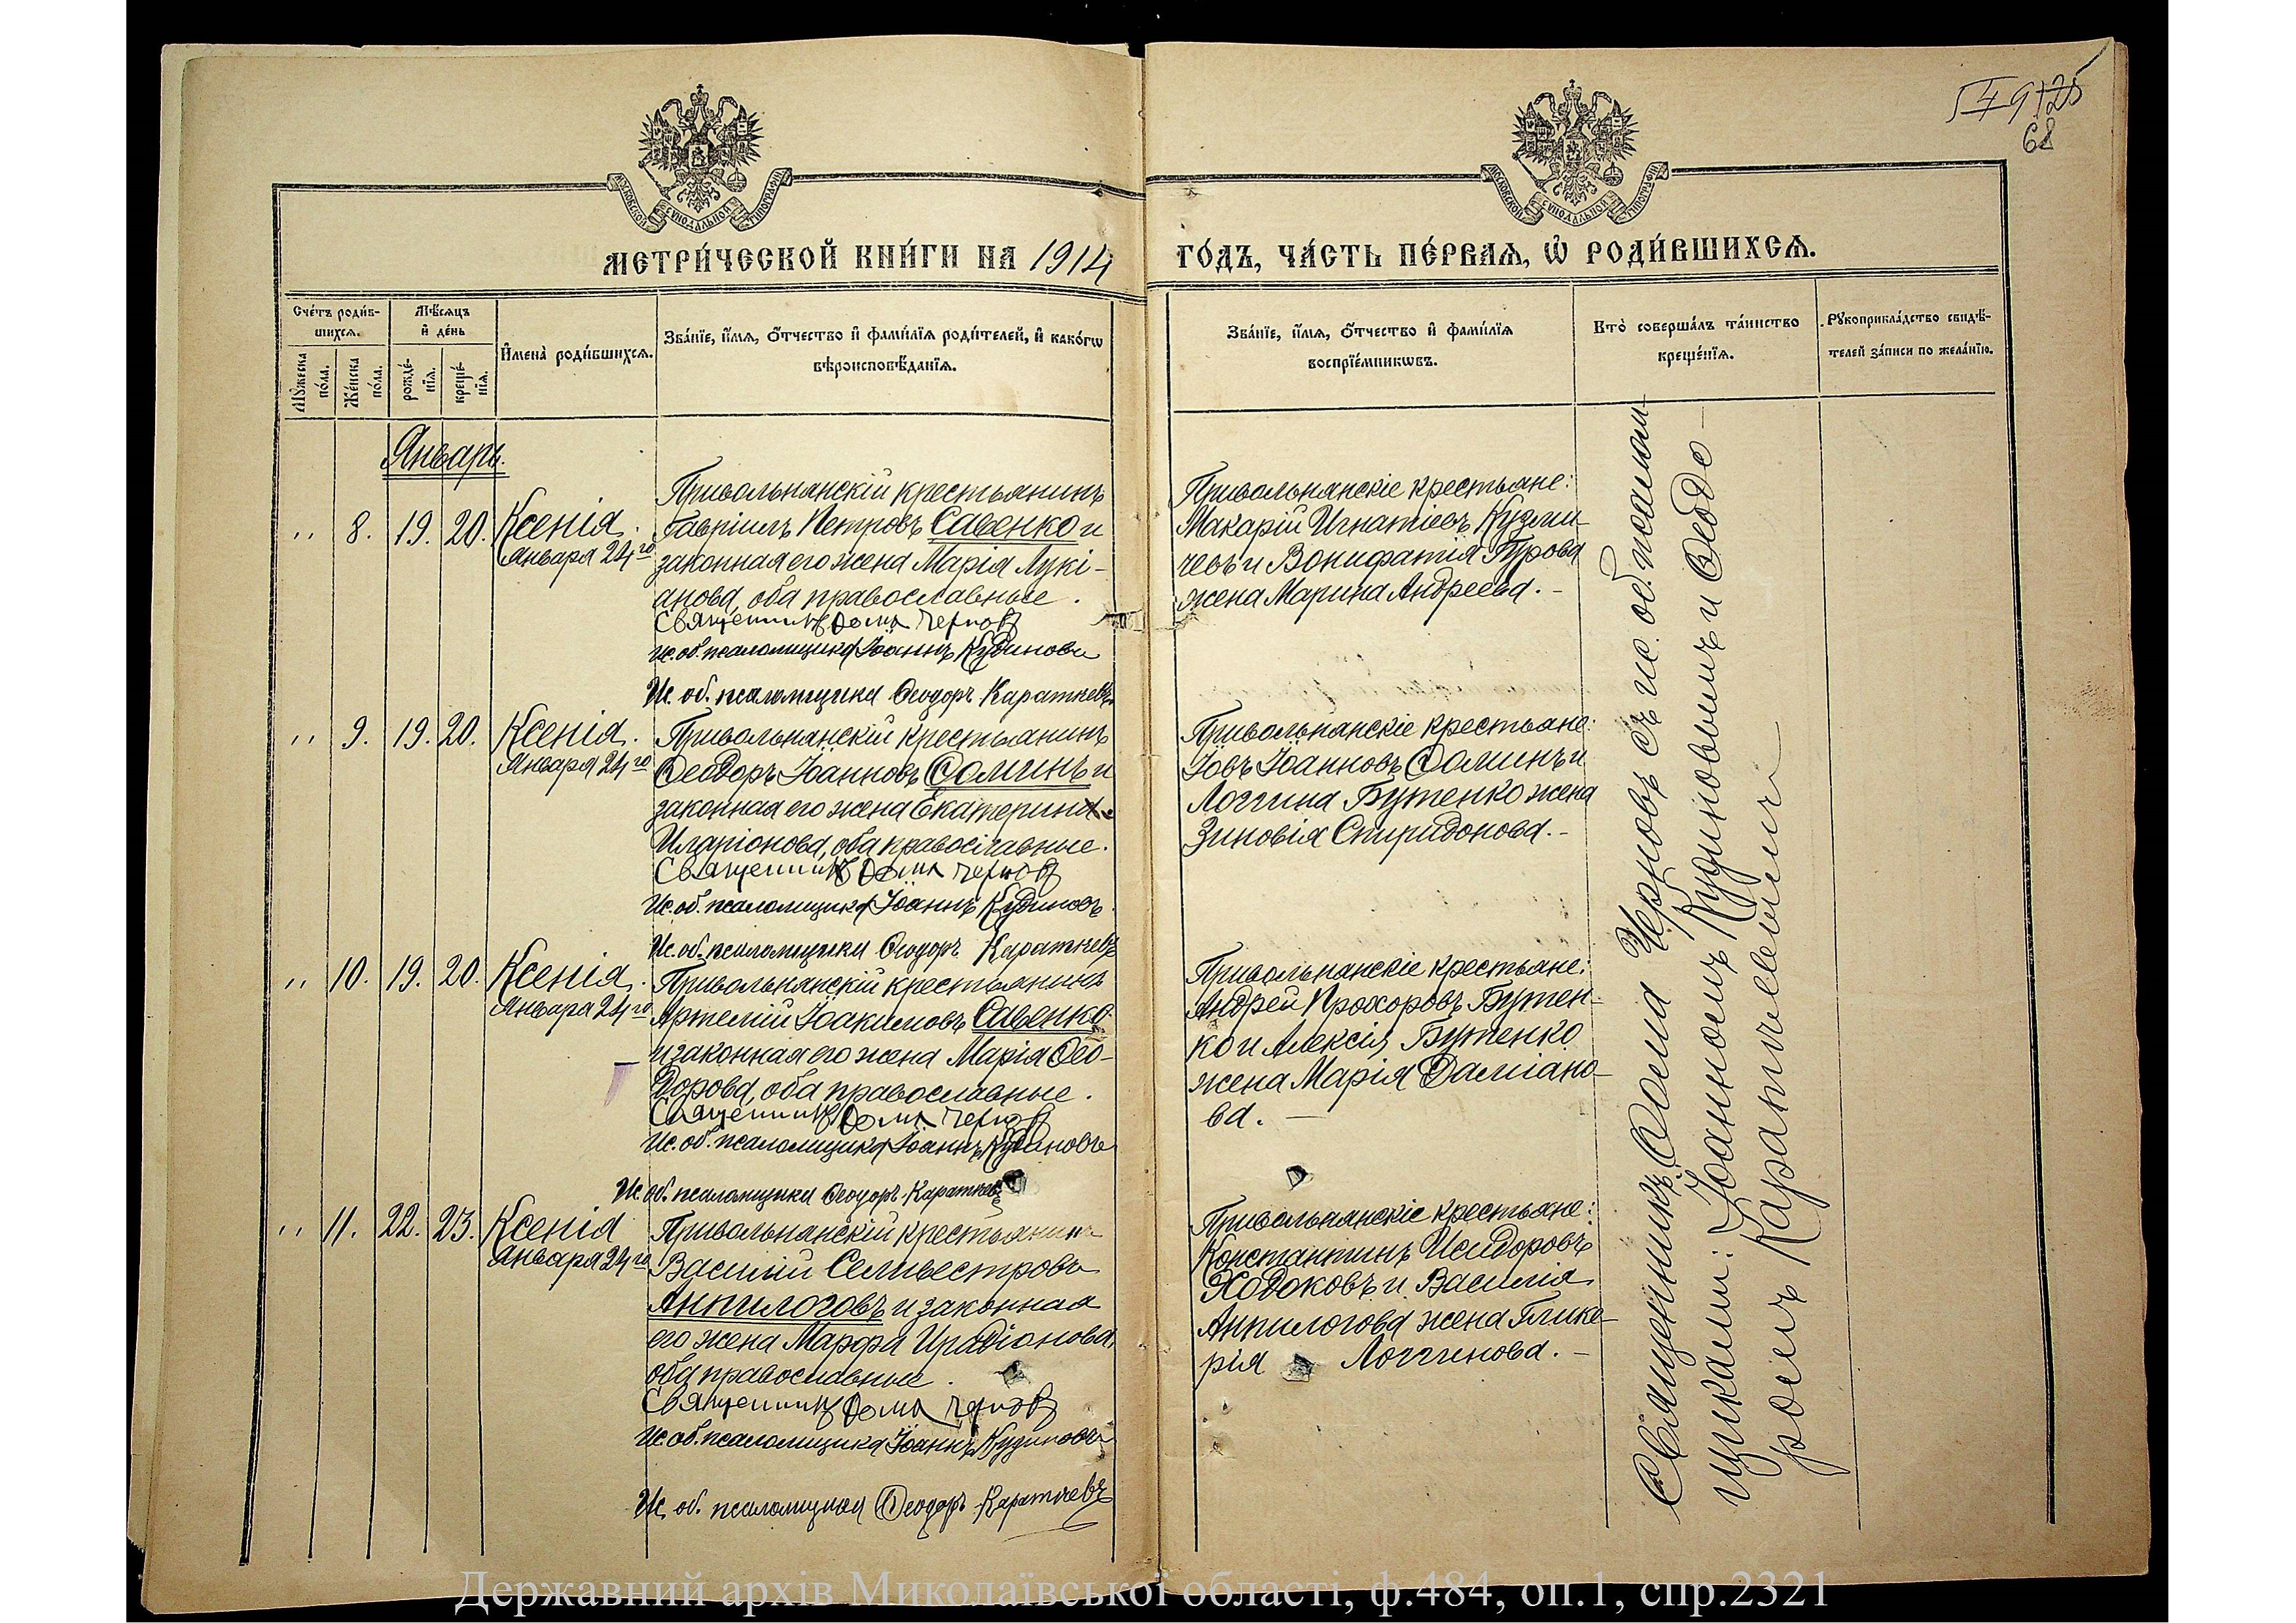 68
МОСКОВСКОЙ СѴНОДАЛЬНОЙ ТИПОГРАФІИ
МОСКОВСКОЙ СѴНОДАЛЬНОЙ ТИПОГРАФІИ
МЕТРИ́ЧЕСКОЙ КНИ́ГИ НА 1914
ГО́ДЪ, ЧА́СТЬ ПЕ́РВАѦ, Ѡ҆ РОДИ́ВШИХСѦ.
Сче́тъ роди́в-
шихсѧ.
Мѣ́сѧцъ
и҆ де́нь
Мꙋ́жеска
по́ла.
Же́нска
по́ла.
рожде́-
нїѧ.
креще́-
нїѧ.
И҆мена̀ роди́вшихсѧ.
Зва́нїе, и҆́мѧ, ѻ҆́тчество и҆ фами́лїѧ роди́телей, и҆ како́гѡ
вѣроисповѣ́данїѧ.
Зва́нїе, и҆́мѧ, ѻ҆́тчество и҆ фами́лїѧ
воспрїе́мникѡвъ.
Кто̀ соверша́лъ та́инство
креще́нїѧ.
Рꙋкоприкла́дство свидѣ́-
телей за́писи по жела́нїю.
Январь.
,, 8. 19. 20. Ксенія.
Января 24го
Привольнянскій крестьянинъ
Гавріилъ Петровъ Савенко и
законная его жена Марія Лукі-
анова, оба православные.
Священникъ Ѳома Черновъ
Ис. об. псаломщика Іоаннъ Кудиновъ
Ис. об. псаломщика Ѳеодоръ Каратѣевъ
Привольнянскіе крестьяне:
Макарій Игнатіевъ Кузми-
чевъ и Вонифатія Гурова
жена Марина Андреева. -
,, 9. 19. 20. Ксенія.
Января 24го
Привольнянскій крестьянинъ
Ѳеодоръ Іоанновъ Ѳоминъ и
законная его жена Екатерина
Иларіонова, оба православные.
Священникъ Ѳома Черновъ
Ис. об. псаломщика Іоаннъ Кудиновъ
Ис. об. псаломщика Ѳеодоръ
Привольнянскіе крестьяне:
Іовъ Іоанновъ Ѳоминъ и
Логгина Бутенко жена
Зиновія Спиридонова. -
,, 10. 19. 20. Ксенія.
Января 24го
Привольнянскій крестьянинъ
Артемій Іоакимовъ Савенко
и законная его жена Марія Ѳео-
дорова, оба православные.
Священникъ Ѳома Черновъ
Ис. об. псаломщика Іоаннъ Кудиновъ
Ис. об. псаломщика Ѳеодоръ
Привольнянскіе крестьяне:
Андрей Прохоровъ Бутен-
ко и Алексія Бутенко
жена Марія Даміано-
ва. -
,, 11. 22. 23. Ксенія
Января 24го
Привольнянскій крестьянинъ
Василій Селивестровъ
Анпилоговъ и законная
его жена Марфа Иродіонова,
оба православные.
Священникъ Ѳома Черновъ
Ис. об. псаломщика Іоаннъ Кудиновъ
Ис. об. псаломщика Ѳеодоръ
Привольнянскіе крестьяне:
Константинъ Исидоровъ
Ходоковъ и Василія
Анпилогова жена Глике-
рія Логгинова. -
Священникъ Ѳома Черновъ съ ис. об. псалом-
щиками: Іоанномъ Кудиновымъ и Ѳеодо-
ромъ
Державний архів Миколаївської області, ф.484, оп.1, спр.2321